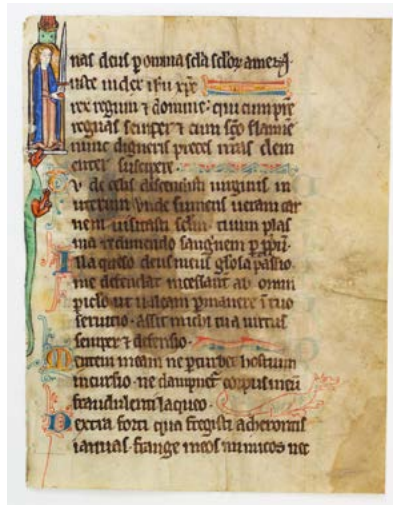 nas deus p omnia scła scłor amen· A
uste iudex ihu xpe
rex regum ⁊ domine: qui cum pre
regnas semper ⁊ cum sco flamie
nunc digneris preces mas clem
enter suscipere
u de celis descendisti uirginis in
uterum vnde sumens ueram car
nem uisitasti sclm· tuum plas
ma redimendo sanguinem p ppriu·
ua queso deus meus glosa passio
me defendat incessant ab omni
piclo ut ualeam pmanere i tuo
seruitio· assit michi tua uirtus
semper ⁊ defensio·
Mentem meam ne pturbet hostium
incursio· ne dampnet corpus meu
fraudulenti laqueo·
Dextra forti qua fregisti acherontis
ianuas· frange meos inimicos nec